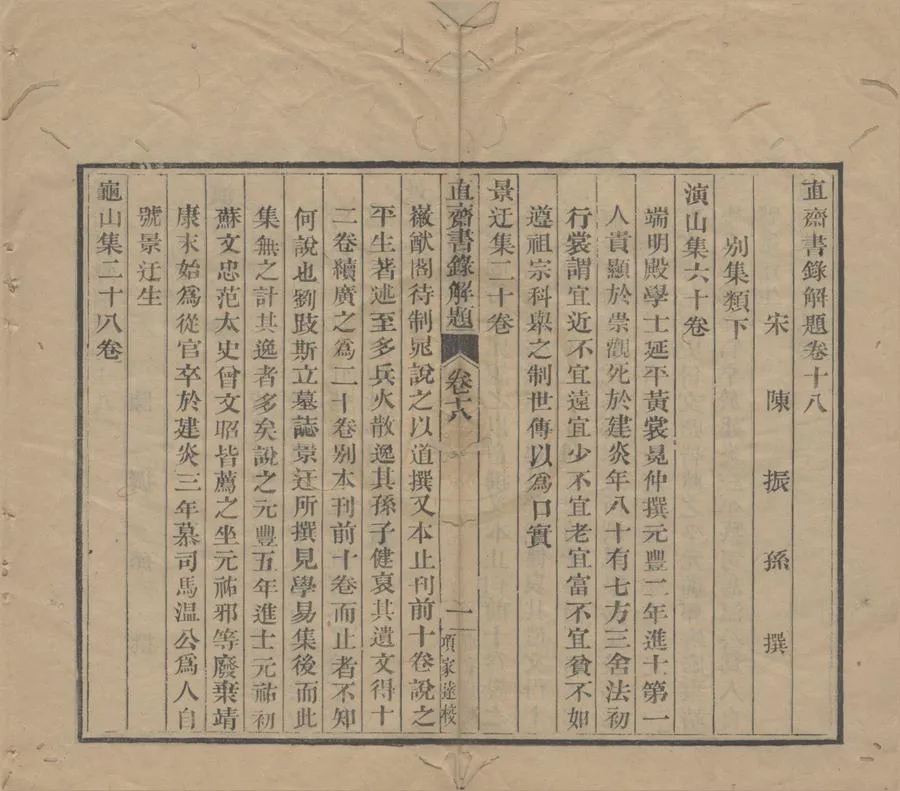 直齋書錄解題卷十八
宋 陳 振 孫 撰
別集類下
演山集六十卷
端明殿學士延平黃裳冕仲撰元豐二年進士第一
人貴顯於崇觀死於建炎年八十有七方三舍法初
行裳謂宜近不宜遠宜少不宜老宜富不宜貧不如
遵祖宗科舉之制世傳以為口實
景迂集二十卷
直齋書錄解題 卷十八 一 項家達校
徽猷閣待制晁說之以道撰又本止刊前十卷說之
平生著述至多兵火散逸其孫子健裒其遺文得十
二卷續廣之為二十卷別本刊前十卷而止者不知
何說也劉跂斯立墓誌景迂所撰見學易集後而此
集無之計其逸者多矣說之元豐五年進士元祐初
蘇文忠范太史曾文昭皆薦之坐元祐邪等廢棄靖
康末始為從官卒於建炎三年慕司馬溫公為人自
號景迂生
龜山集二十八卷